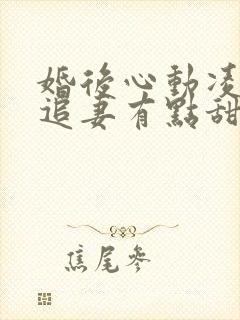 婚後心動凌
追妻有點甜
焦尾參